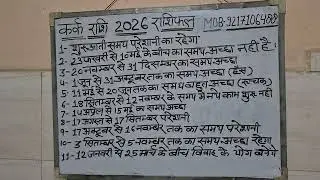 कर्क राशि 2026 राशिफल MOB-9217106488
1- शुरुआती समय परेशानी का रहेगा
2- 23 जनवरी से 16 मई के बीच का समय अच्छा नहीं है।
3- 20 नवम्बर से 31 दिसम्बर का समय अच्छा
4- 1 जून से 31 अक्टूबर तक का समय अच्छा (हंस)
5- 11 मई से 20 जून तक का समय बहुत अच्छा (रूचक)
6- 18 सितम्बर से 12 नवम्बर के समय में नया काम शुरू नहीं
7- 14 अप्रैल से 15 मई का समय अच्छा
8- 17 अगस्त से 17 सितम्बर परेशानी
9- 17 अक्टूबर से 16 नवम्बर तक का समय परेशानी
10- 3 सितम्बर से 5 नवम्बर तक का समय अच्छा रहेगा
11- 12 जनवरी से 25 मार्च के बीच विवाह के योग बनेंगे